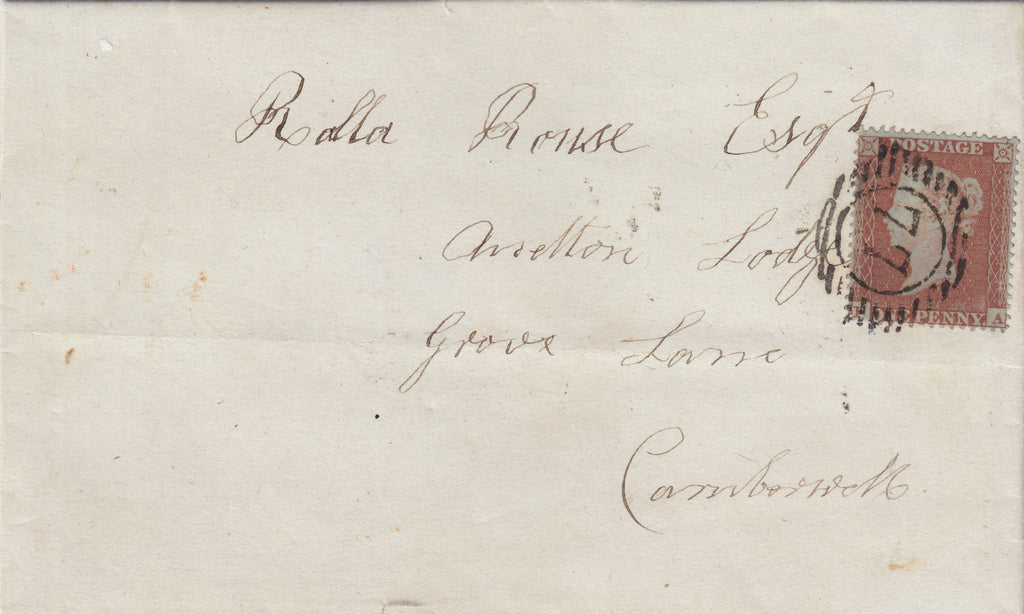 Rolla Rouse Esqr
Melton Lodge
Grove Lane
Camberwell
POSTAGE
77
PENNY A